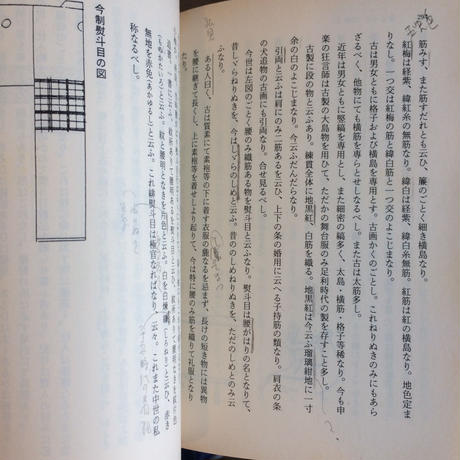 筋みす、また筋すだれとも云ひ、簾のごとく細き横島なり。
紅梅は経紫、緯紅糸の無筋なり。緯白は経紫、緯白糸無筋。紅筋は紅の横島なり。地色定ま
りなし。一つ交は紅梅の筋と緯白筋と一つ交のよこじまなり。
古は男女ともに格子および横島を専用とす。古画かくのごとし。これねりぬきのみにもあら
ざるべく、他物にても横筋を専らとせしなるべし。また古は太筋多し。
近年は男女ともに竪縞を専用とし、また細密の縞多く、太島・横筋・格子等稀なり。今も申
楽の狂言師は古製の大島物を用ひて、ただかの舞台服のみ足利時代の製を存すこと多し。
古製に段の物と云ふあり。練貫全体に地黒紅、白筋を織る。地黒紅は今云ふ瑠璃紺地に一寸
余の白のよこじまなり。今云ふだんだらなり。
引両と云ふは肩にのみ二筋あるを云ひ、上下の条の婚用に云へる子持筋の類なり。肩衣の条
の犬追物の古画にも引両なり。合せ見るべし。
今世は左図のごとく腰のみ織筋ある物を熨斗目と云ふなり。熨斗目は腰がはりの名となりて、
昔しいらねりぬきを、今はしゞらのしめと云ふ。昔ののしめねりぬきを、ただのしめとのみ云
ふなり。
ある人曰く、古は質素にて素袍等の下に着す衣服の麁なるを忌まず、長けの短き物には異物
を腰に継ぎて長くし、上に素袍等を着せしより起りて、今は特に腰のみ筋を織りて礼服となり
たり。
無地を赤色(あかゆるし)と云ふ。これ緋熨斗目は極官なればなり、云々。これまた中世の私
称なるべし。
今制熨斗目の図